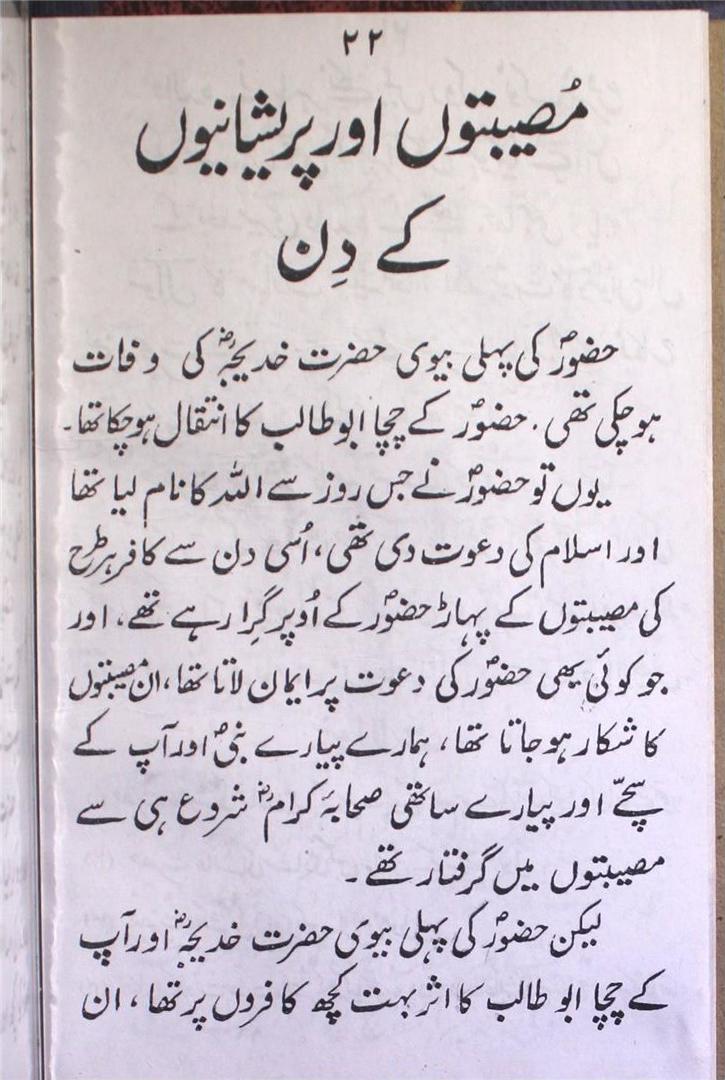 ۲۲
مُصیبتوں اور پریشانیوں
کے دِن
حضورؐ کی پہلی بیوی حضرت خدیجہؓ کی وفات
ہوچکی تھی۔ حضورؐ کے چچا ابوطالب کا انتقال ہوچکا تھا۔
یوں تو حضورؐ نے جس روز سے اللہ کا نام لیا تھا
اور اسلام کی دعوت دی تھی، اُسی دن سے کافر ہر طرح
کی مصیبتوں کے پہاڑ حضورؐ کے اُوپر گِرا رہے تھے، اور
جو کوئی بھی حضورؐ کی دعوت پر ایمان لاتا تھا، ان مصیبتوں
کا شکار ہوجاتا تھا، ہمارے پیارے نبیؐ اور آپ کے
سچّے اور پیارے ساتھی صحابۂ کرامؓ شروع ہی سے
مصیبتوں میں گرفتار تھے۔
لیکن حضورؐ کی پہلی بیوی حضرت خدیجہؓ اور آپ
کے چچا ابو طالب کا اثر بہت کچھ کافروں پر تھا، ان